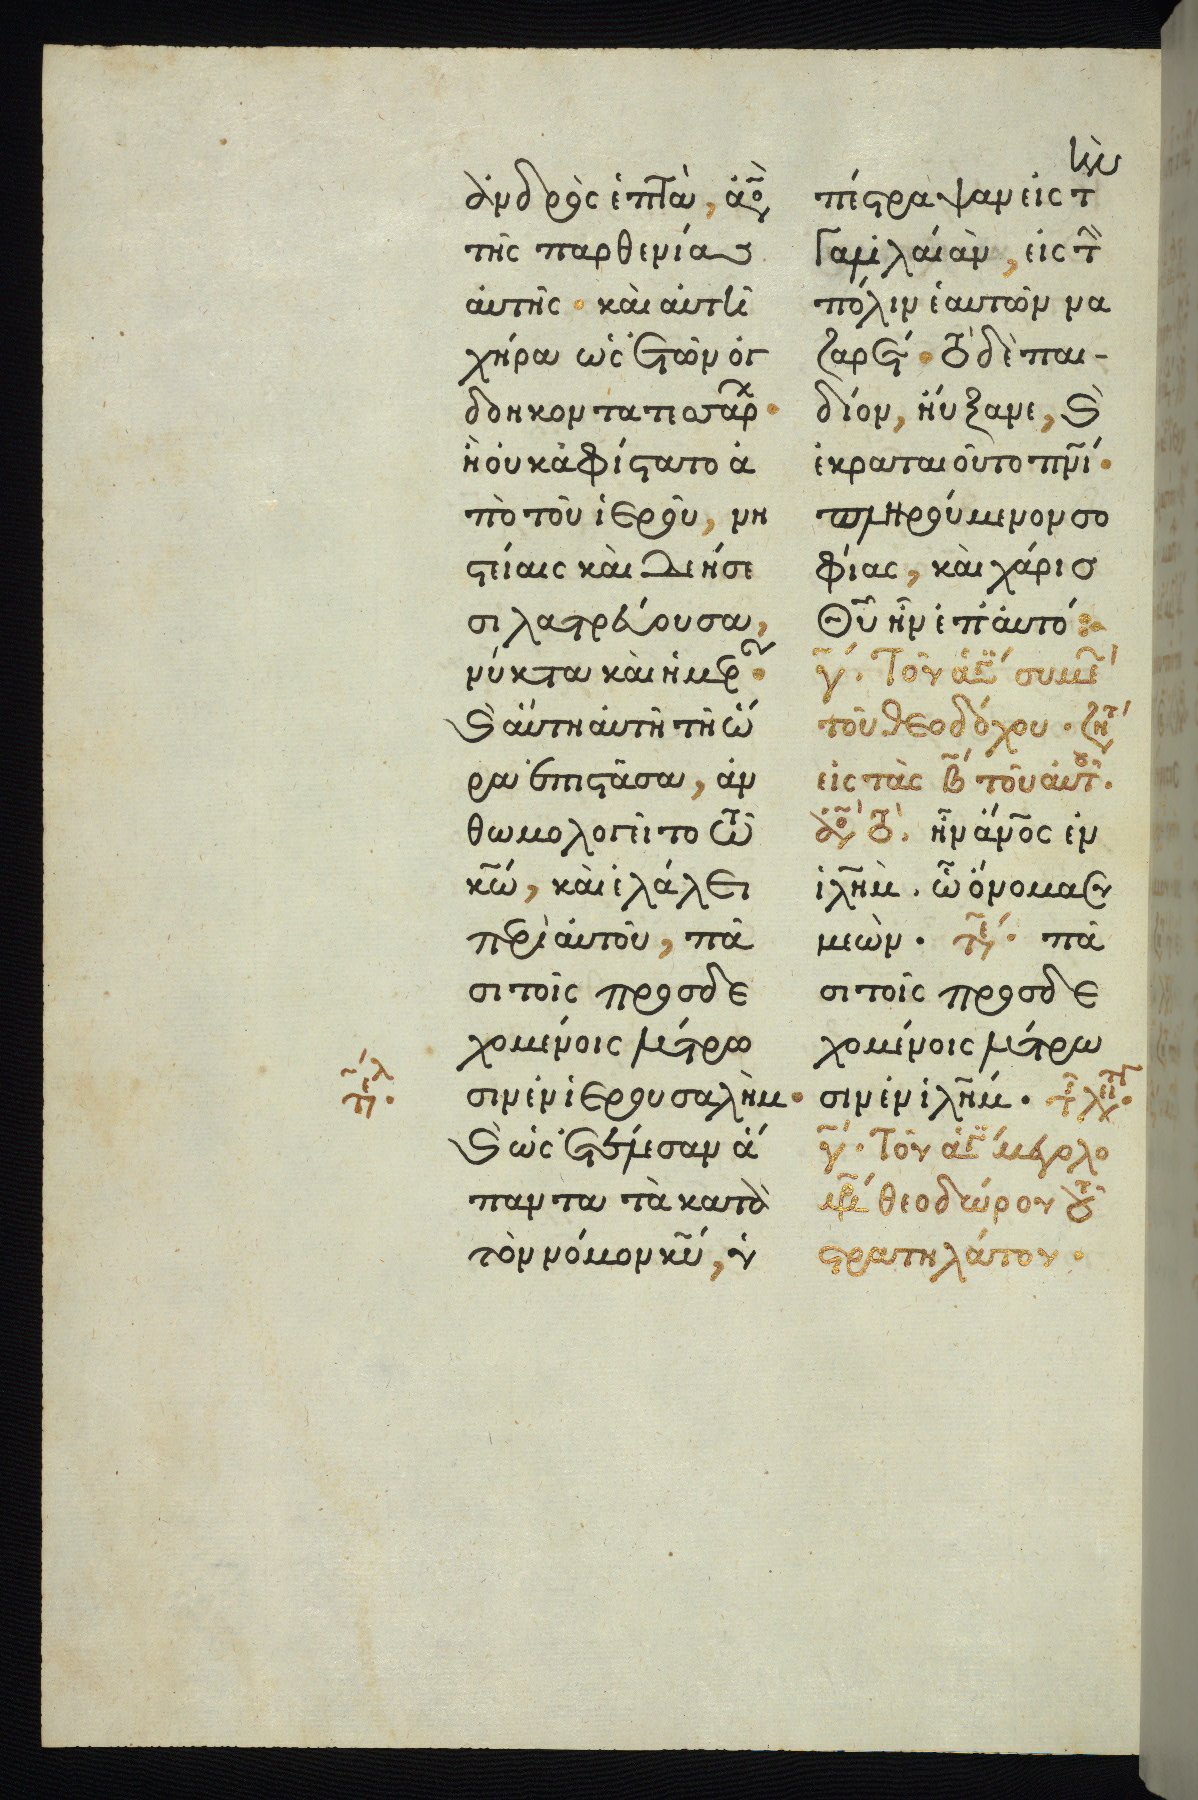 ἀνδρὸς ἑπτὰ, ἀπὸ
τῆς παρθενίας
αὐτῆς · καὶ αὐτὴ
χήρα ὡς ἐτῶν ὀγ
δοήκοντα τεσσάρ ·
ἣ οὐκ ἀφίστατο ἀ
πὸ τοῦ ἱεροῦ, νη
στείαις καὶ δεήσε
σι λατρεύουσα,
νύκτα καὶ ἡμέρ ·
καὶ αὕτη αὐτῇ τῇ ὥ
ρα ἐπιστᾶσα, ἀν
θωμολογεῖτο τῷ
κ͞ω, καὶ ἐλάλει
περὶ αὐτοῦ, πᾶ
σι τοῖς προσδε
χομένοις λύτρω
σιν ἐν ἱερουσαλὴμ ·
καὶ ὡς ἐτέλεσαν ἅ
παντα τὰ κατὰ
τὸν νόμον κ͞υ, ὑ
πέστρεψαν εἰς τὴν
Γαλιλαίαν, εἰς τὴν
πόλιν ἑαυτῶν να
ζαρέτ · τὸ δὲ παι-
δίον, ηὔξανε, καὶ
ἐκραταιοῦτο π͞νι ·
πληρούμενον σο
φίας, καὶ χάρις
Θ͞υ ἦν ἐπ' αὐτό :
τοῦ ἁγ συμε
τοῦ θεοδόχου · ζητ
εἰς τὰς β τοῦ αὐτ ·
ἦν ἄν͞ος ἐν
ἰλ͞ημ · ᾧ ὄνομα συ
μεών · πᾶ
σι τοῖς προσδε
χομένοις λύτρω
σιν ἐν ἰλ͞ημ ·
τοῦ ἁγ μεγαλο
μ θεοδώρου τοῦ
στρατηλάτου ·